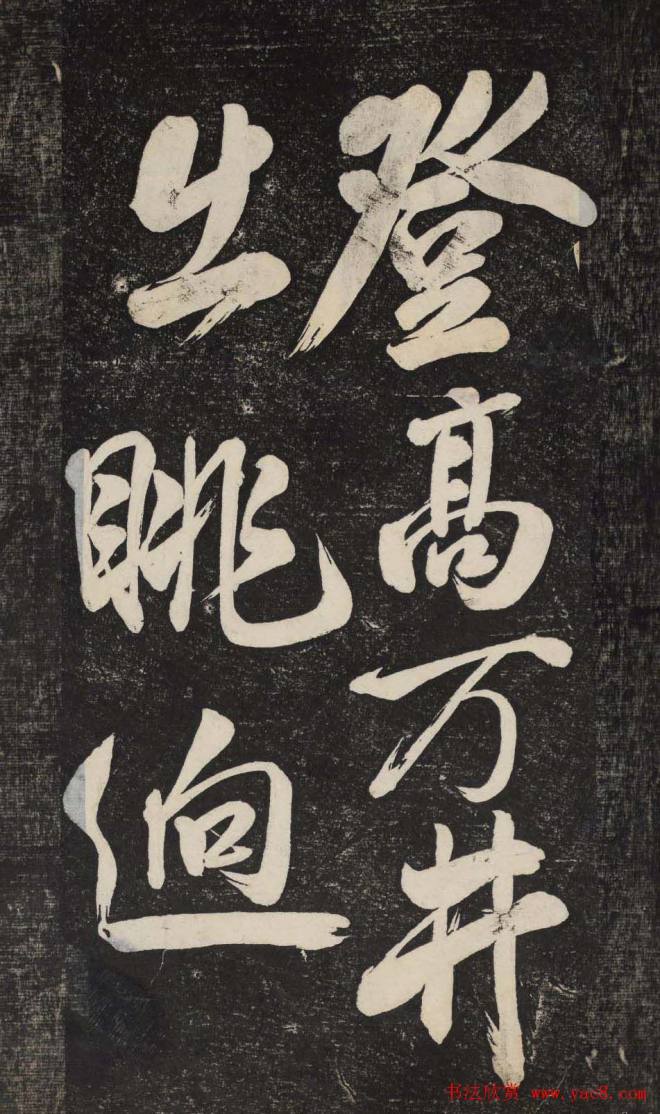 登髙万井
出眺逈
书法欣赏 www.yac8.com